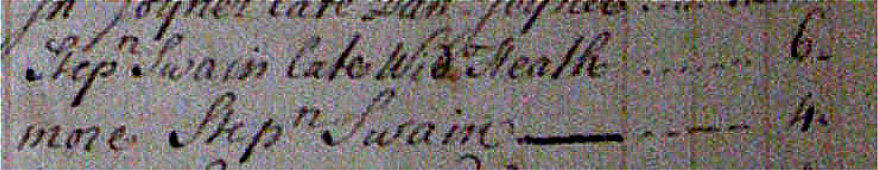 Jn Joyner late Dan Joyner
Stepn Swain late Widw Heath ...... 6.
more Stepn Swain —— ...... 4.